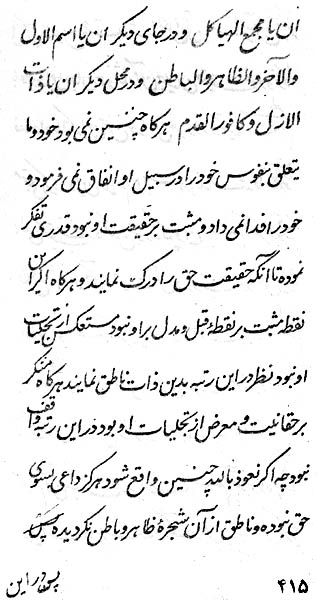 ان یا مجمع الهیاکل و در جای دیگر ان یا اسم الاول
والآخر والظاهر والباطن و در محل دیگر ان یا ذات
الازل و کافور القدم هرگاه چنین نمی بود خود و ما
یتعلق بنفوس خود را در سبیل او انفاق نمی فرمود و
خود را فدا نمی داد و مثبت بر حقیقت او نبود قدری تفکر
نموده تا آنکه حقیقت حق را درک نمایند و هرگاه اگر این
نقطه مثبت بر نقطهٔ قبل و مدل بر او نبود مستعکس از تجلیات
او نبود نظر در این رتبه بدین ذات ناطق نمایند هرگاه منکر
بر حقانیت و معرض از تجلیات او بود در این رتبه واقف
نبود چه اگر نعوذ بالله چنین واقع شود هرگز داعی بسوی
حق نبوده و ناطق از آن شجرهٔ ظاهر و باطن نگردیده پس
۴۱۵ پس در این